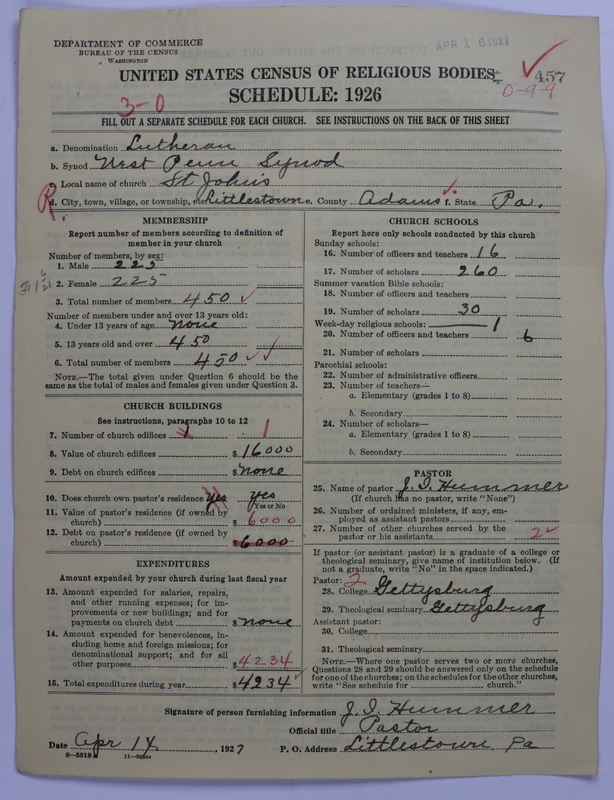 DEPARTMENT OF COMMERCE
BUREAU OF THE CENSUS
WASHINGTON
APR 16 1927
UNITED STATES CENSUS OF RELIGIOUS BODIES
457
SCHEDULE: 1926
3-0
0-9-9
FILL OUT A SEPARATE SCHEDULE FOR EACH CHURCH. SEE INSTRUCTIONS ON THE BACK OF THIS SHEET
a. Denomination Lutheran
b. Synod West Penn Synod
c. Local name of church St John's
R
d. City, town, village, or township, etc Littlestown e. County Adams f. State Pa.
MEMBERSHIP
Report number of members according to definition of
member in your church
Number of members, by sex:
1. Male 225
2. Female 225
3. Total number of members 450
Number of members under and over 13 years old:
4. Under 13 years of age none
5. 13 years old and over 450
6. Total number of members 450
NOTE.—The total given under Question 6 should be the
same as the total of males and females given under Question 3.
CHURCH BUILDINGS
See instructions, paragraphs 10 to 12
7. Number of church edifices 1 1
8. Value of church edifices $16000
9. Debt on church edifices $none
10. Does church own pastor's residence yes yes
Yes or No
11. Value of pastor's residence (if owned by
church) $6000
12. Debt on pastor's residence (if owned by
church) $6000
EXPENDITURES
Amount expended by your church during last fiscal year
13. Amount expended for salaries, repairs,
and other running expenses; for im-
provements or new buildings; and for
payments on church debt $none
14. Amount expended for benevolences, in-
cluding home and foreign missions; for
denominational support; and for all
other purposes $4234
15. Total expenditures during year $4234
CHURCH SCHOOLS
Report here only schools conducted by this church
Sunday schools:
16. Number of officers and teachers 16
17. Number of scholars 260
Summer vacation Bible schools:
18. Number of officers and teachers
19. Number of scholars 30
Week-day religious schools: 1
20. Number of officers and teachers 6
21. Number of scholars
Parochial schools:
22. Number of administrative officers
23. Number of teachers—
a. Elementary (grades 1 to 8)
b. Secondary
24. Number of scholars—
a. Elementary (grades 1 to 8)
b. Secondary
PASTOR
25. Name of pastor J. I. Hummer
(If church has no pastor, write "None")
26. Number of ordained ministers, if any, em-
ployed as assistant pastors
27. Number of other churches served by the
pastor or his assistants 2
If pastor (or assistant pastor) is a graduate of a college or
theological seminary, give name of institution below. (If
not a graduate, write "No" in the space indicated.)
Pastor: 2
28. College Gettysburg
29. Theological seminary Gettysburg
Assistant pastor:
30. College
31. Theological seminary
NOTE.—Where one pastor serves two or more churches,
Questions 28 and 29 should be answered only on the schedule
for one of the churches; on the schedules for the other churches,
write "See schedule for church."
Signature of person furnishing information J. I. Hummer
Official title Pastor
Date Apr 14, 1927 P. O. Address Littlestown Pa
8-5518a